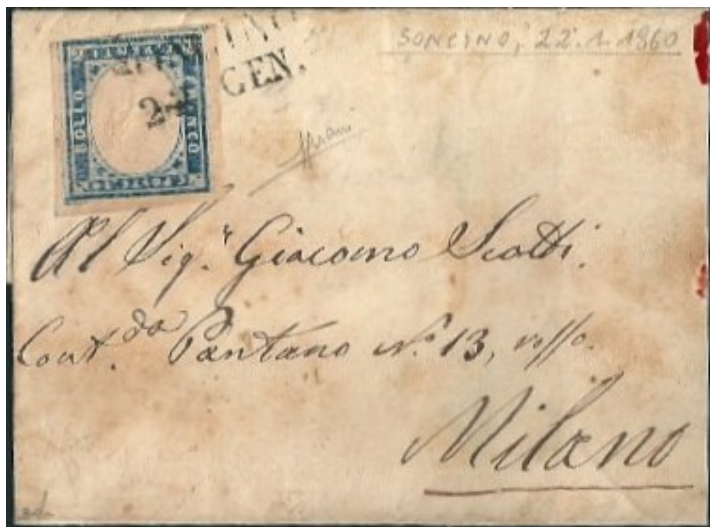 SONCINO, 22.1.1860
22 GEN.
BOLLO
FRANCO
C. VENTI 20
Al Sig.r Giacomo Scotti.
Cont.da Pantano N.o 13, rosso.
Milano